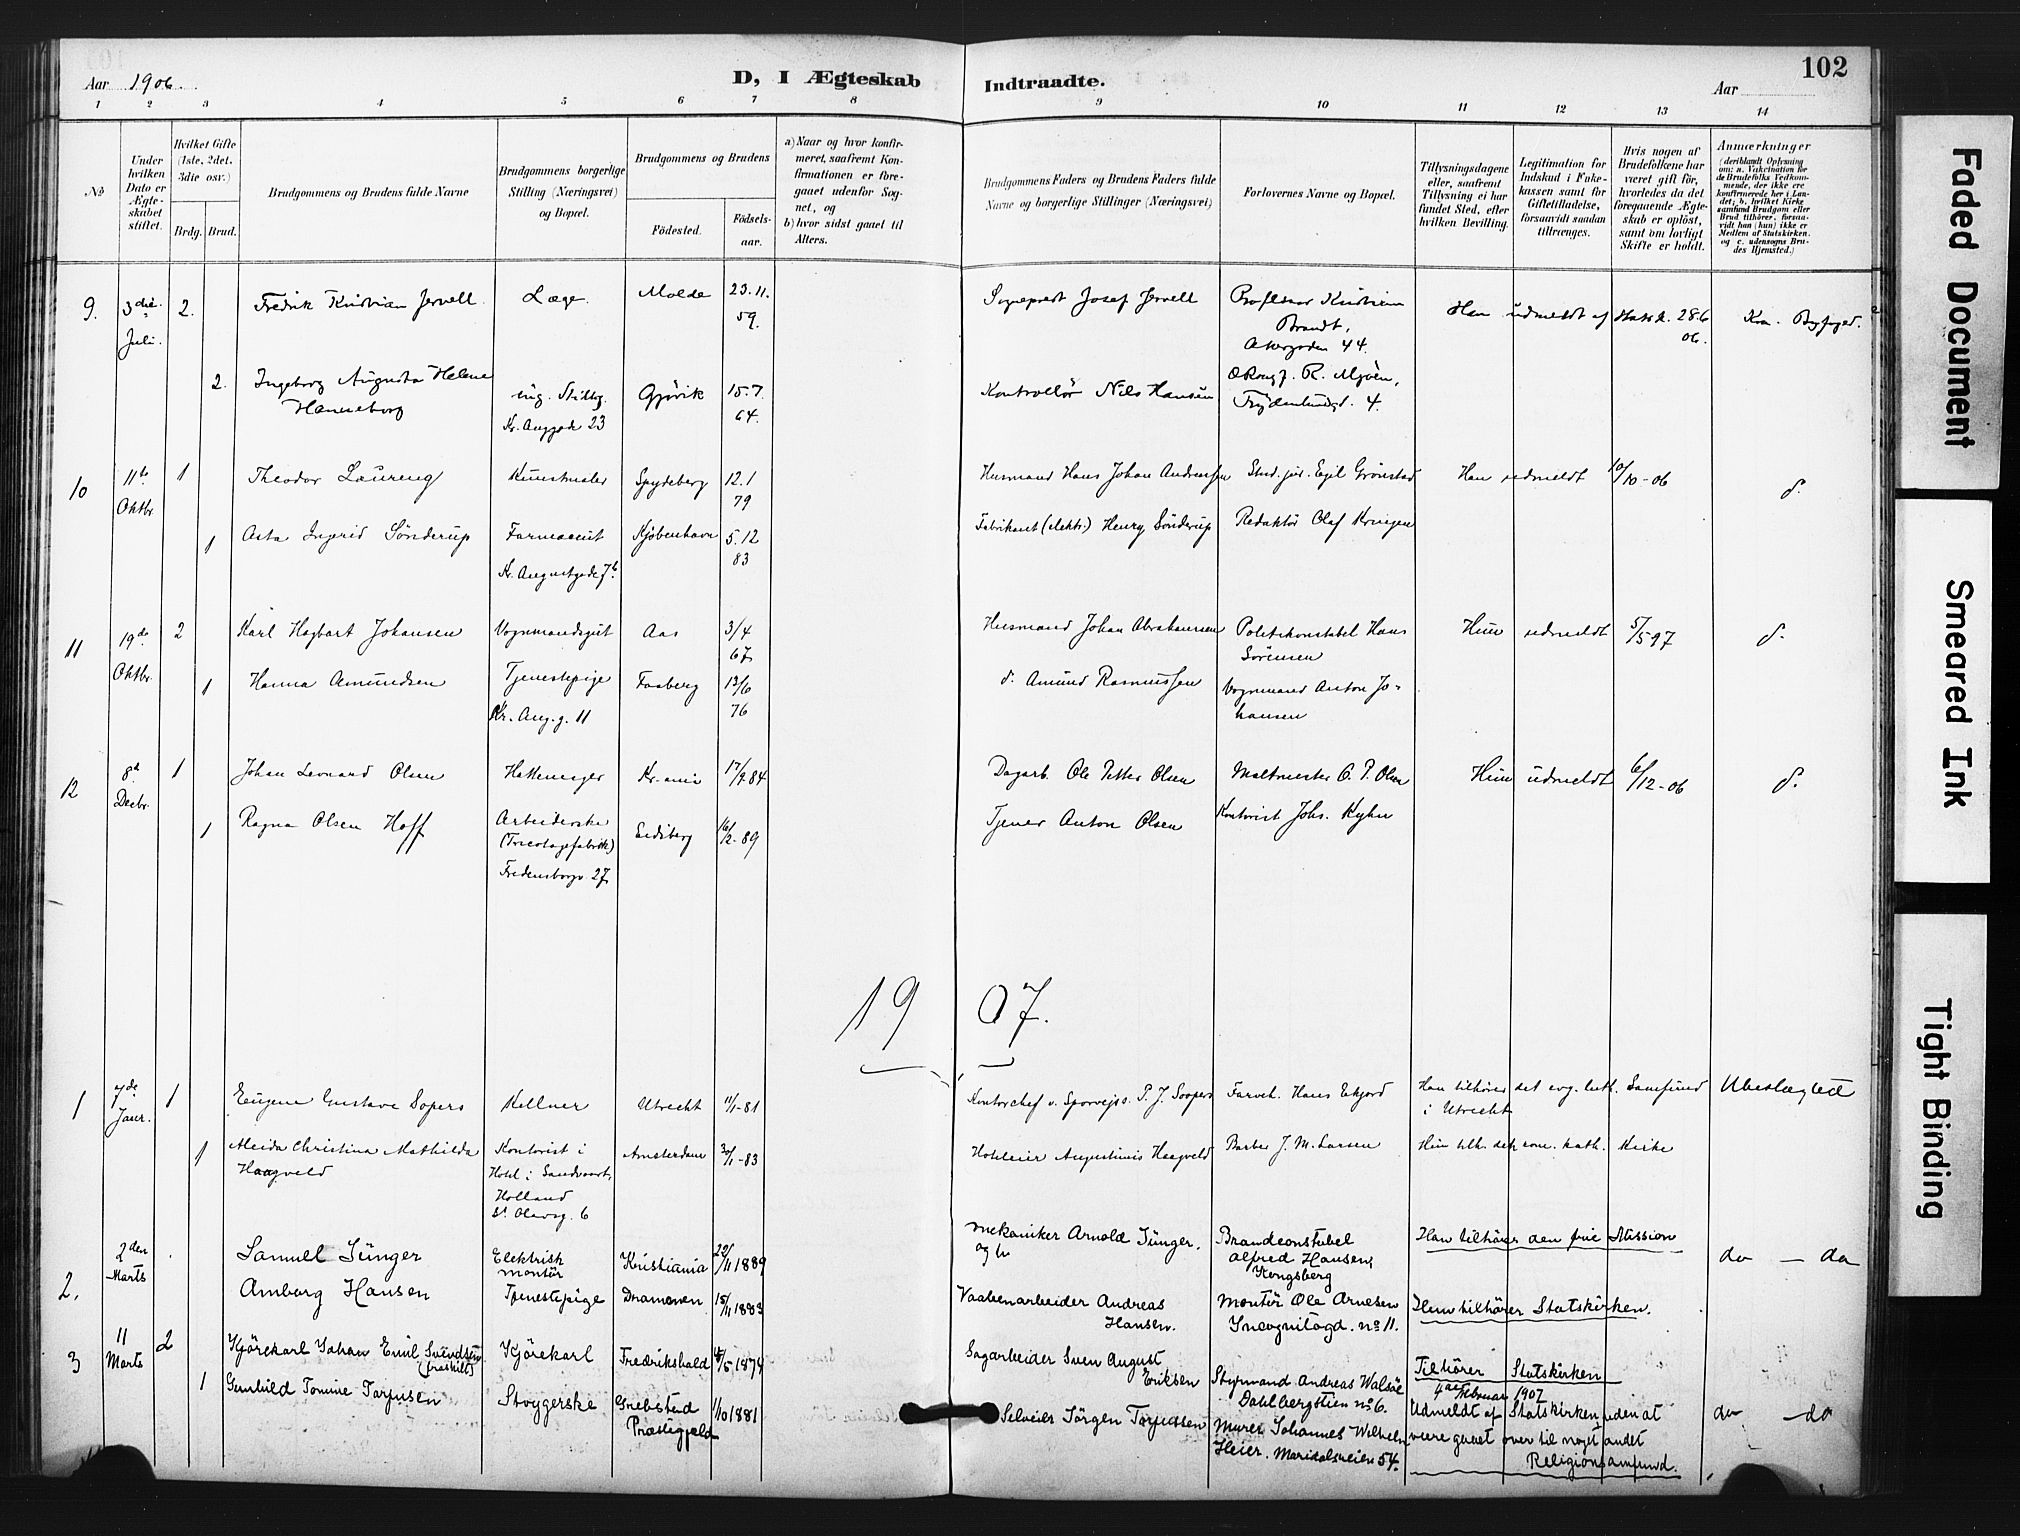 Aar 1906.
D, I Ægteskab Indtraadte.
102
Aar
1 2 3 4 5 6 7 8 9 10 11 12 13 14
No
Under hvilken Dato er Ægteskabet stiftet.
Hvilket Gifte (1ste, 2det, 3die osv.)
Brdg. Brud.
Brudgommens og Brudens fulde Navne
Brudgommens borgerlige Stilling (Næringsvei) og Bopæl.
Brudgommens og Brudens
Fødested.
Fødselsaar.
a) Naar og hvor konfirmeret, saafremt Konfirmationen er foregaaet udenfor Sognet, og
b) hvor sidst gaaet til Alters.
Brudgommens Faders og Brudens Faders fulde Navne og borgerlige Stillinger (Næringsvei)
Forlovernes Navne og Bopæl.
Tillysningsdagene eller, saafremt Tillysning ei har fundet Sted, efter hvilken Bevilling.
Legitimation for Indskud i Enkekassen samt for Giftetilladelse, forsaavidt saadan tiltrænges.
Hvis nogen af Brudefolkene har været gift før, hvorledes da det foregaaende Ægteskab er opløst, samt om lovligt Skifte er holdt.
Anmærkninger (deriblandt Oplysning om: a. Vakcination for de Brudefolks Vedkommende, der ikke ere konfirmerede her i Landet; b. hvilket Kirkesamfund Brudgom eller Brud tilhører, forsaavidt han (hun) ikke er Medlem af Statskirken, og c. udensogns Brudes Hjemsted.)
9. 3die Juli. 2. Fredrik Kristian Jervell Læge. Molde 23.11. 59. Sogneprest Josef Jervell Professor Kristian Brandt, Akersgaden 44. Han udmeldt af Statsk. 28.6 06. Kra. Byfoged.
2. Ingeborg Augusta Helene Hanneborg ing. Stilling. Kr. Auggade 23 Gjøvik 15.7 64. Kontrollør Nils Hansen R. Mjøen, Frydenlundgd. 4.
10 11te Oktbr. 1 Theodor Laureng Kunstmaler Spydeberg 12.1 79 Husmand Hans Johan Andreassen Stud. jur. Egil Grønstad Han udmeldt 10/10-06 d.
1 Asta Ingrid Sønderup Farmaceut Kr. Augustgade 7b. Kjøbenhavn 5.12 83 Fabrikant (elektr.) Henry Sønderup Redaktør Olaf Kringen
11 19de Oktbr. 2 Karl Hagbart Johansen Vognmandsgut Aas 3/4 67 Husmand Johan Abrahamsen Politikonstabel Hans Sørensen Hun udmeldt 5/5 97 d.
1 Hanna Amundsen Tjenestepige Kr. Aug.g. 11 Faaberg 13/6 76 d. Amund Rasmussen Vognmand Anton Johansen
12 8d Decbr. 1 Johan Leonard Olsen Hattemager Kr.ania 17/9.84 Dagarb. Ole Petter Olsen Maltmester O. P. Olsen Hun udmeldt 6/12-06 d.
1 Ragna Olsen Hoff Arbeiderske (Tricotagefabrik) Fredensborgv. 27 Eidsberg 16/2-89 Tjener Anton Olsen Kontorist Johs. Kyhn
1907.
1 7de Janr. 1 Eugene Gustave Sopers Kellner Utrecht 11/1-81 Kontorchef v. Sporveiss. P. J. Soopers Farveh. Hans Ekjord Han tilhører det evg. luth. Samfund i Utrecht Ubeslægted
1 Aleida Christina Mathilda Haagveld Kontorist i Hotel i Sandvoort, Holland St. Olavsg. 6 Amsterdam 3/1-83 Hoteleier Augustinus Haagveld Barber J. M. Larsen Hun tilh. det rom. kath. Kirke
2. 2den Marts Samuel Jünger Elektrisk montør Kristiania 22/11 1889 Mekaniker Arnold Jünger. Brandconstabel Alfred Hansen, Kongsberg Han tilhører den frie Mission do — do
Amborg Hansen Tjenestepige Drammen 15/11 1883 Vaabenarbeider Andreas Hansen. Montør Ole Arnesen Incognitogd. no 11. Hun tilhører Statskirken.
3 11 Marts 2 Kjørekarl Johan Emil Svendsen (fraskilt) Kjørekarl Fredrikshald 1874 Sagarbeider Sven August Eriksen Styrmand Andreas Walsøe Dahlbergstien no 6. Tilhører Statskirken
1 Gunhild Tomine Tarjusen Strygerske Grebstad Præstegjeld 1/10 1881 Selveier Jörgen Tarjusen Murer Johannes Wilhelm Heier. Maridalsveien 54. 4de Februar 1907 Udmeldt af Statskirken uden at være gaaet over til noget andet Religionsamfund. do — do
Faded Document
Smeared Ink
Tight Binding